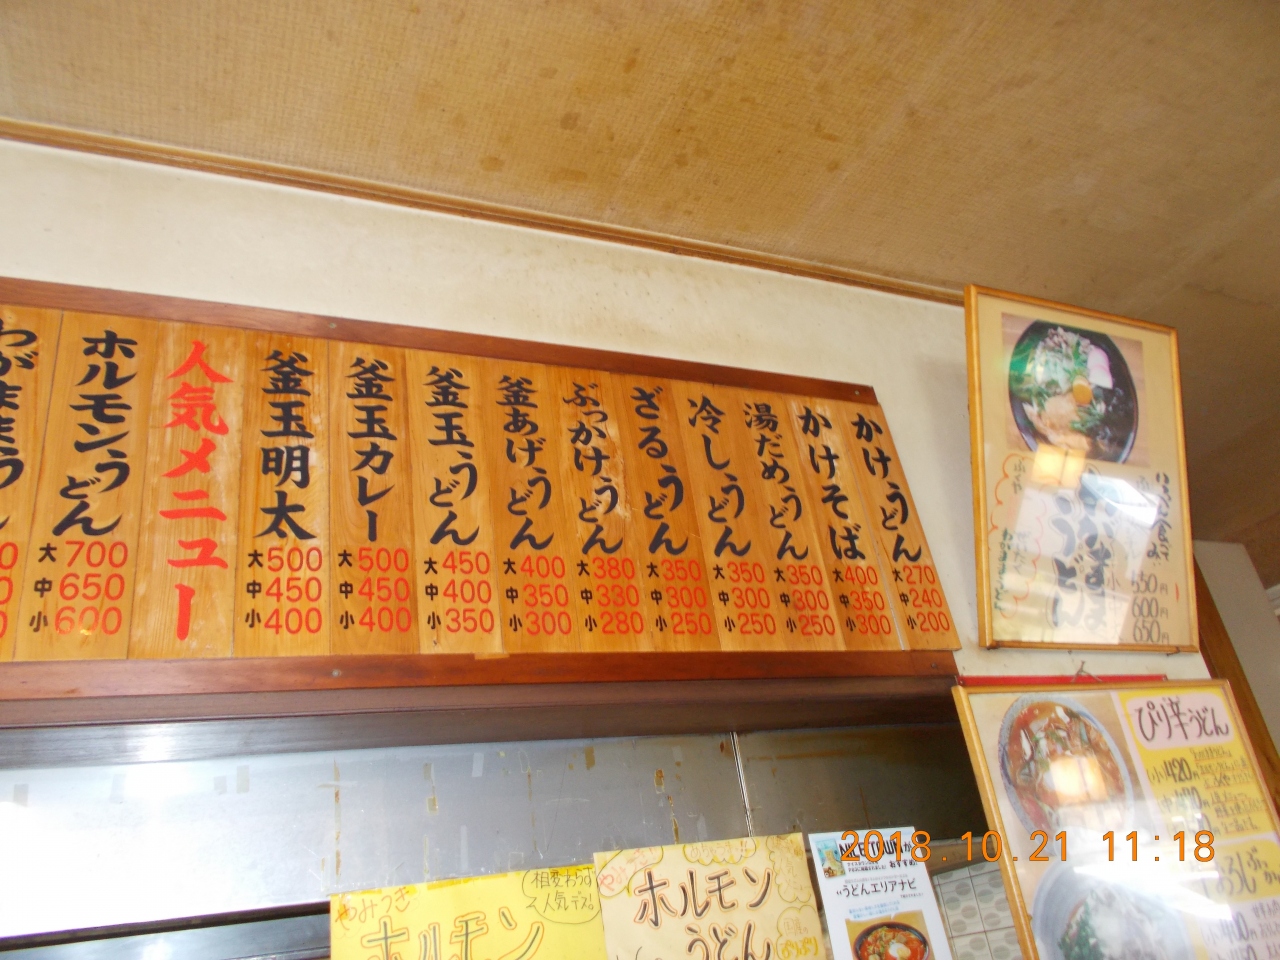 かけうどん
大270
中240
小200
かけそば
大400
中350
小300
湯だめうどん
大350
中300
小250
冷しうどん
大350
中300
小250
ざるうどん
大350
中300
小250
ぶっかけうどん
大380
中330
小280
釜あげうどん
大400
中350
小300
釜玉うどん
大450
中400
小350
釜玉カレー
大500
中450
小400
釜玉明太
大500
中450
小400
人気メニュー
ホルモンうどん
大700
中650
小600
わがままう
うどん
小 550円
600円
650円
ぴり辛うどん
(小)420円
やみつき
ホルモン
相変わらず
人気デス!
ホルモン
うどん
NICE TOWN
うどんエリアナビ
2018.10.21 11:18